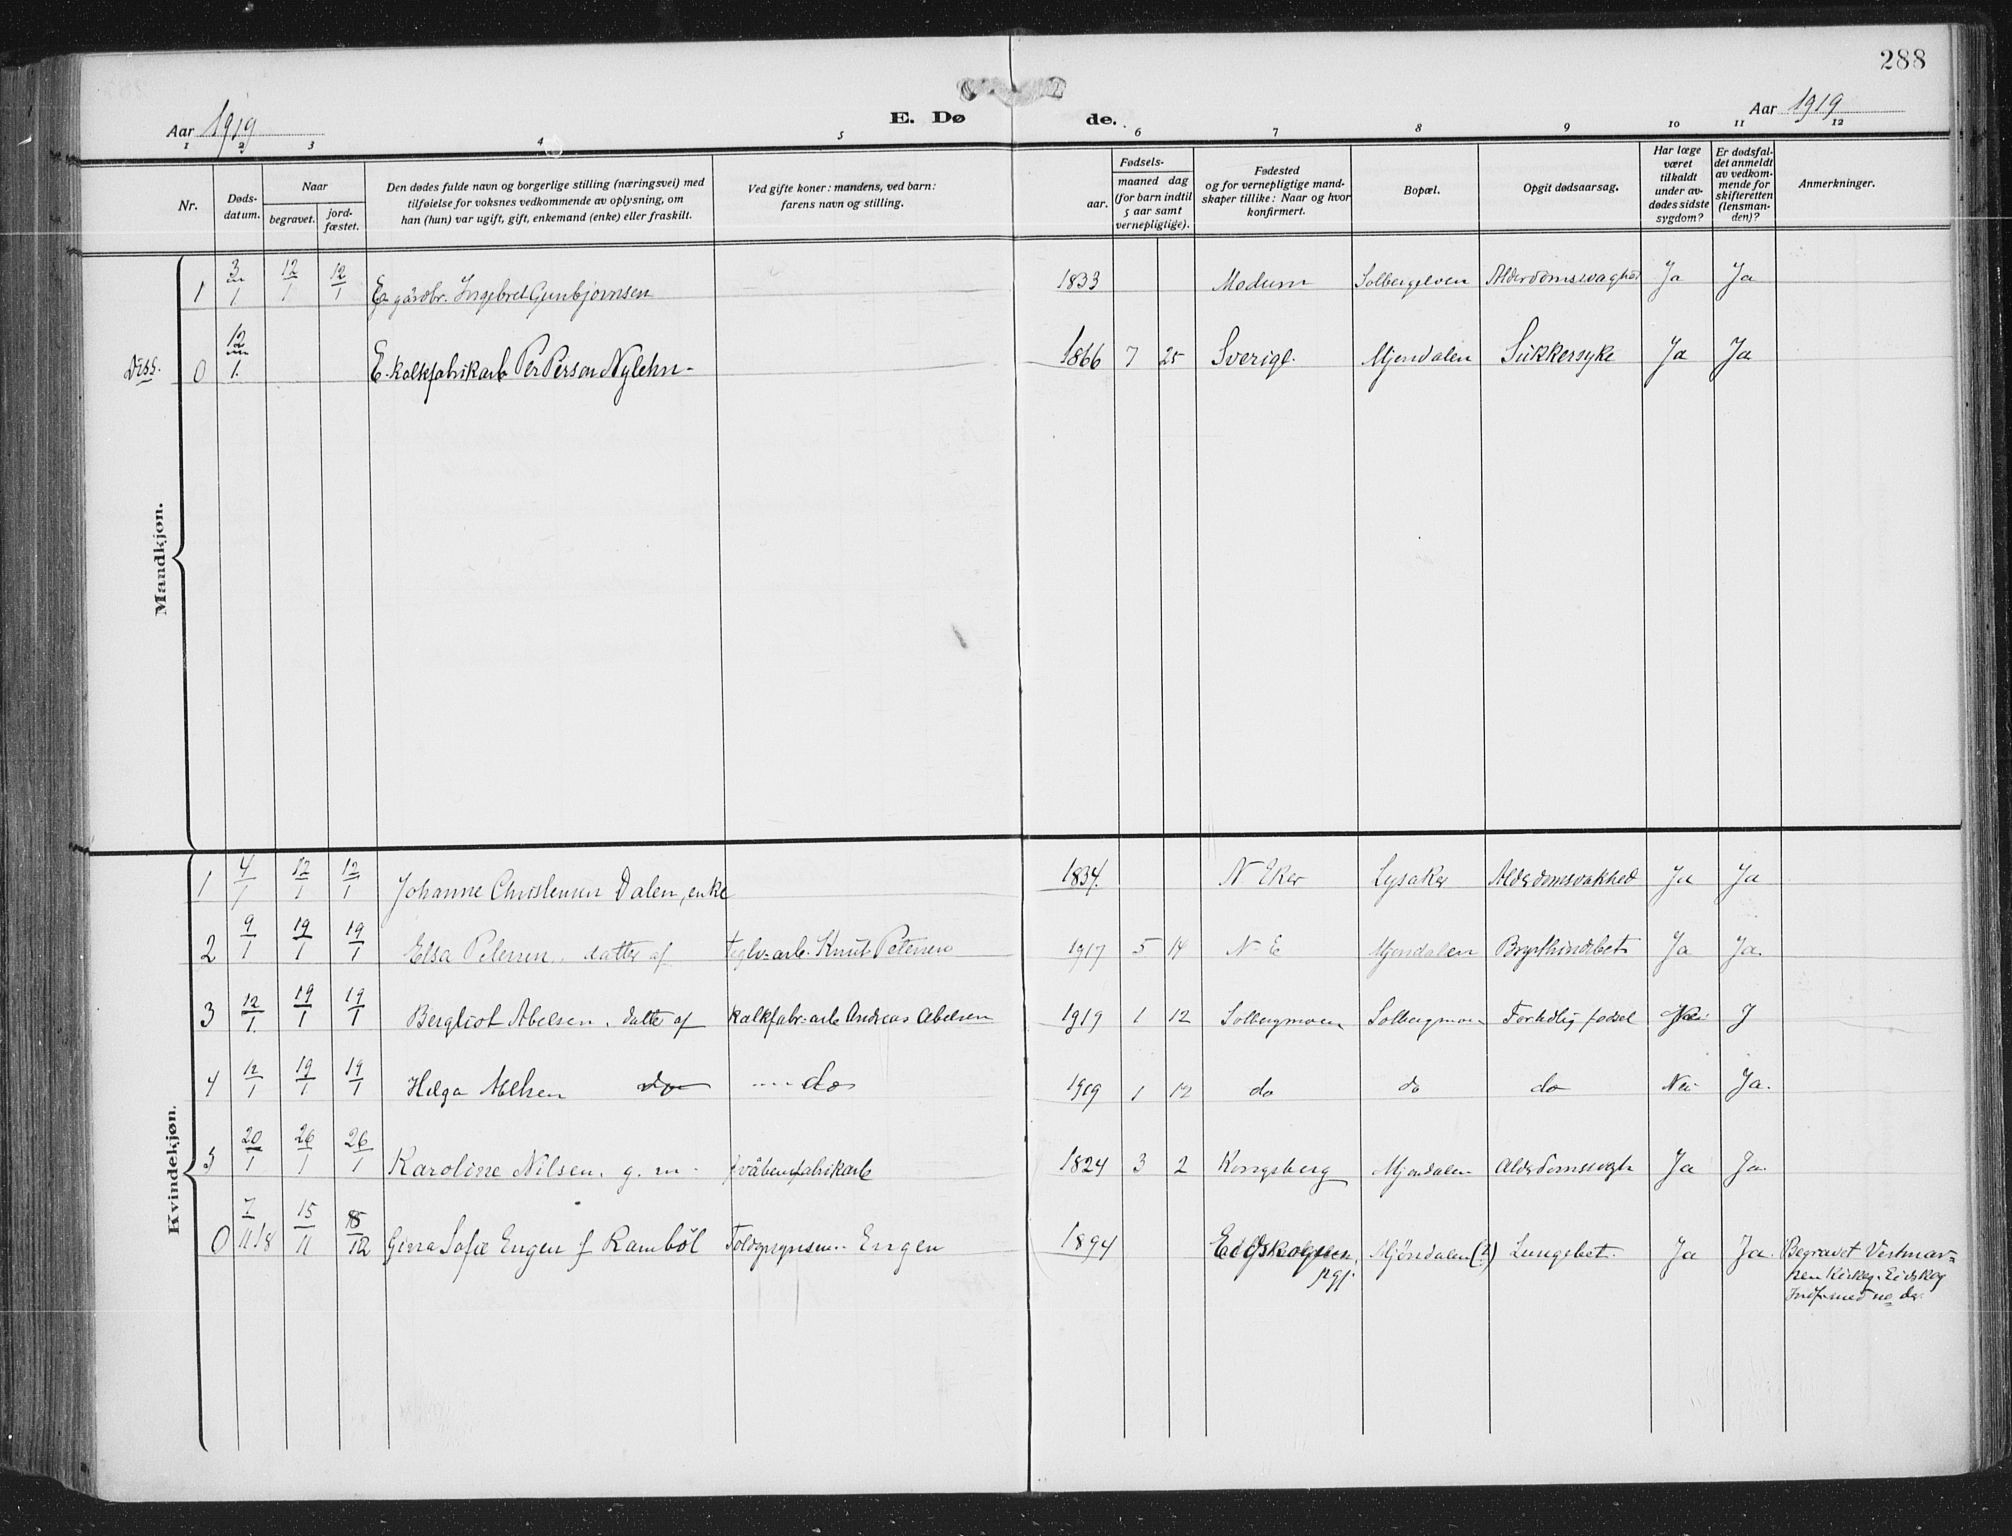 288
Aar 1919
E. Dø
de.
Aar 1919
1 2 3 4 5 6 7 8 9 10 11 12
Nr.
Døds-
datum.
Naar
begravet.
jord-
fæstet.
Den dødes fulde navn og borgerlige stilling (næringsvei) med
tilføielse for voksnes vedkommende av oplysning, om
han (hun) var ugift, gift, enkemand (enke) eller fraskilt.
Ved gifte koner: mandens, ved barn:
farens navn og stilling.
Fødsels-
aar.
maaned dag
(for barn indtil
5 aar samt
vernepligtige).
Fødested
og for vernepligtige mand-
skaper tillike: Naar og hvor
konfirmert.
Bopæl.
Opgit dødsaarsag.
Har læge
været
tilkaldt
under av-
dødes sidste
sygdom?
Er dødsfal-
det anmeldt
av vedkom-
mende for
skifteretten
(lensman-
den)?
Anmerkninger.
Mandkjøn.
1 3/1 12/1 12/1 E. gårdbr. Ingebret Gunbjørnsen 1833 Modum Solbergelven Alderdomssvaghed Ja Ja
Diss. 0 12/1. E. kalkfabrikarb Per Person Nylehn - 1866 7 25 Sverige. Mjøndalen Sukkersyke Ja Ja
Kvindekjøn.
1 4/1 12/1 12/1 Johanne Christensen Dalen, enke 1834. N Eker Lysaker Alderdomsvakhed Ja Ja
2 9/1 19/1 19/1 Elsa Petersen, datter af teglv=arb. Knut Petersen 1917 5 14 N. E Mjøndalen Brysthindebet Ja Ja.
3 12/1. 19/1 19/1 Bergliot Abelsen, datter af kalkfabr=arb Andreas Abelsen 1919 1 12 Solbergmoen Solbergmoen Fortidlig fødsel Nei J
4 12/1 19/1 19/1 Helga Abelsen do do 1919 1 12 do do do Nei Ja.
5 20/1 26/1 26/1 Karoline Nilsen, g. m. f våbenfabrikarb 1824 3 2 Kongsberg Mjøndalen Alderdomssvgh Ja Ja
0 7/11 18 15/11 15/12 Gina Sofie Engen f Rambøl Engen 1894 Eidskogen Mjøndalen (?) Lungebet. Ja Ja. Begravet Vestmar=
pgj.
ken Kirkeg. Eidskog